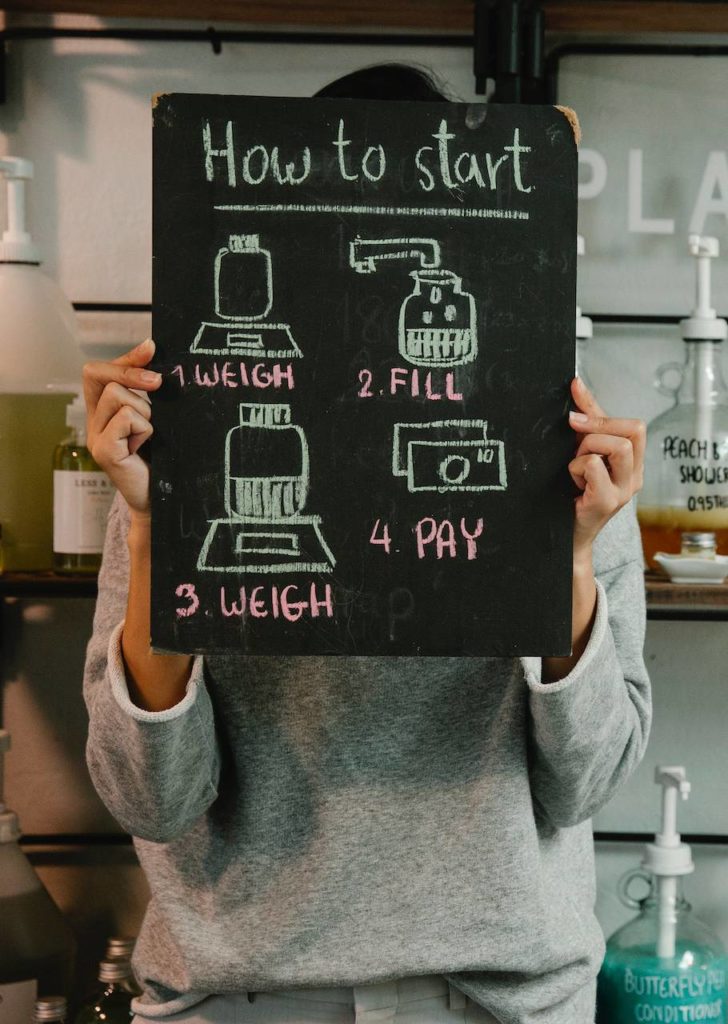 How to start
1. WEIGH
2. FILL
10
3. WEIGH
4. PAY
PLA
LESS &
PEACH &
SHOWER
BUTTERFLY
CONDITION